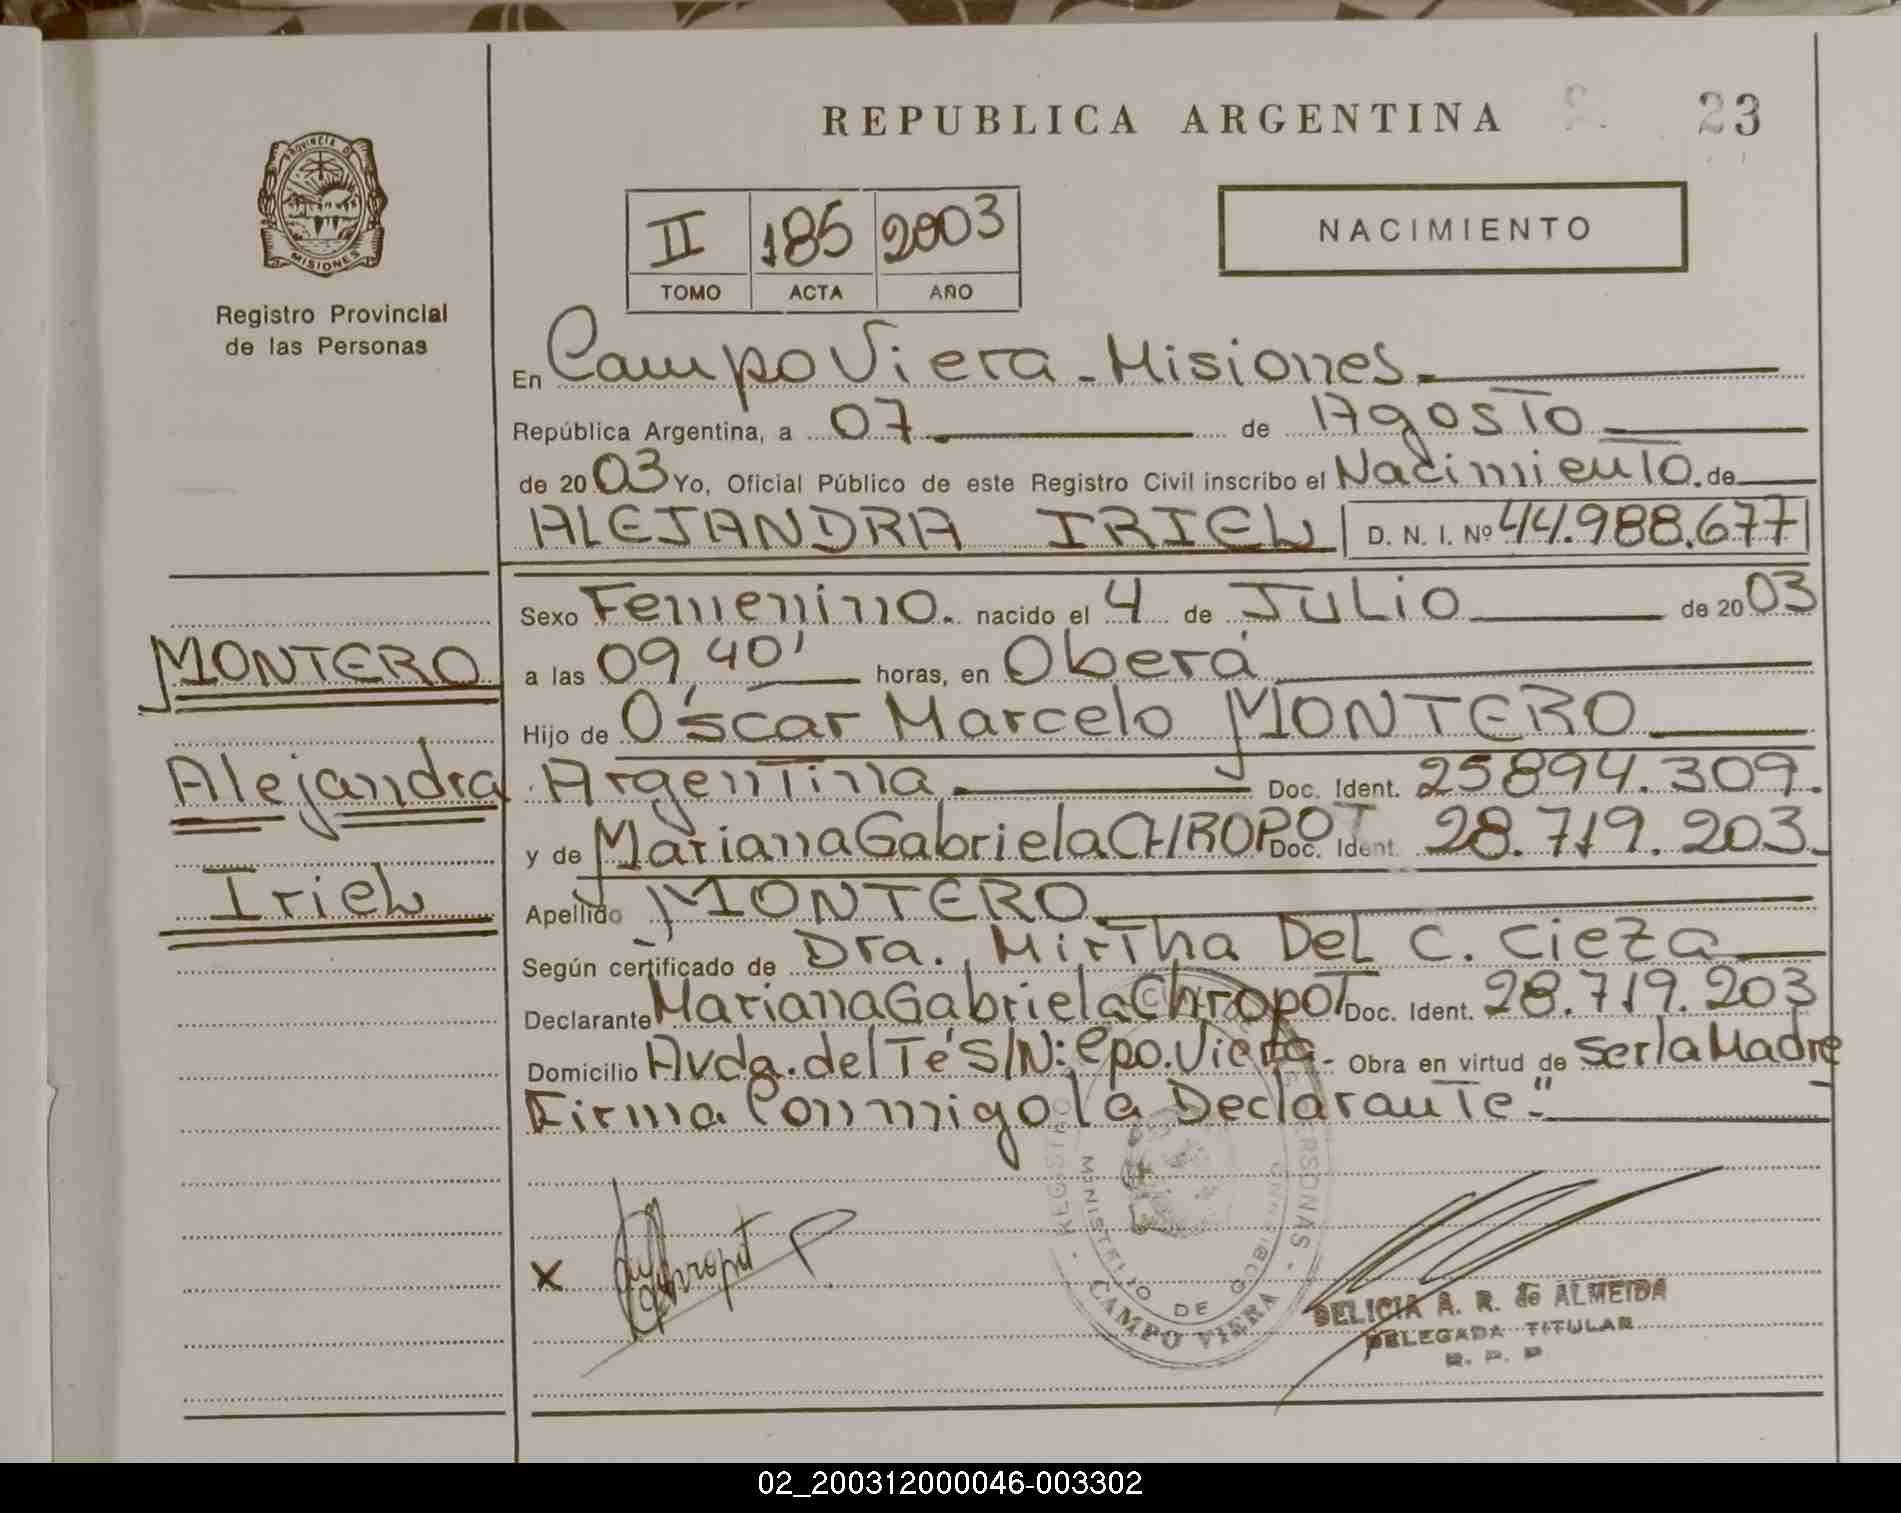 REPUBLICA ARGENTINA
23
PROVINCIA DE
MISIONES
Registro Provincial
de las Personas
II 185 2003
TOMO ACTA AÑO
NACIMIENTO
En Campo Viera - Misiones.
República Argentina, a 07 de Agosto
de 2003 Yo, Oficial Público de este Registro Civil inscribo el Nacimiento. de
ALEJANDRA IRIEL D. N. I. Nº 44.988.677
Sexo Femenino. nacido el 4 de Julio de 2003
a las 09,40' horas, en Oberá
Hijo de Oscar Marcelo MONTERO
Argentina Doc. Ident. 25894.309.
y de Mariana Gabriela CHROPOT Doc. Ident. 28.719.203.
Apellido MONTERO
Según certificado de Dra. Mirtha Del C. Cieza
Declarante Mariana Gabriela Chropot Doc. Ident. 28.719.203
Domicilio Avda. del Té S/N: Cpo. Viera - Obra en virtud de Ser la Madre
Firma Conmigo la Declarante."
MONTERO
Alejandra
Iriel
x
MINISTERIO DE GOBIERNO
CAMPO VIERA
DELICIA A. R. de ALMEIDA
DELEGADA TITULAR
R. P. P
02_200312000046-003302